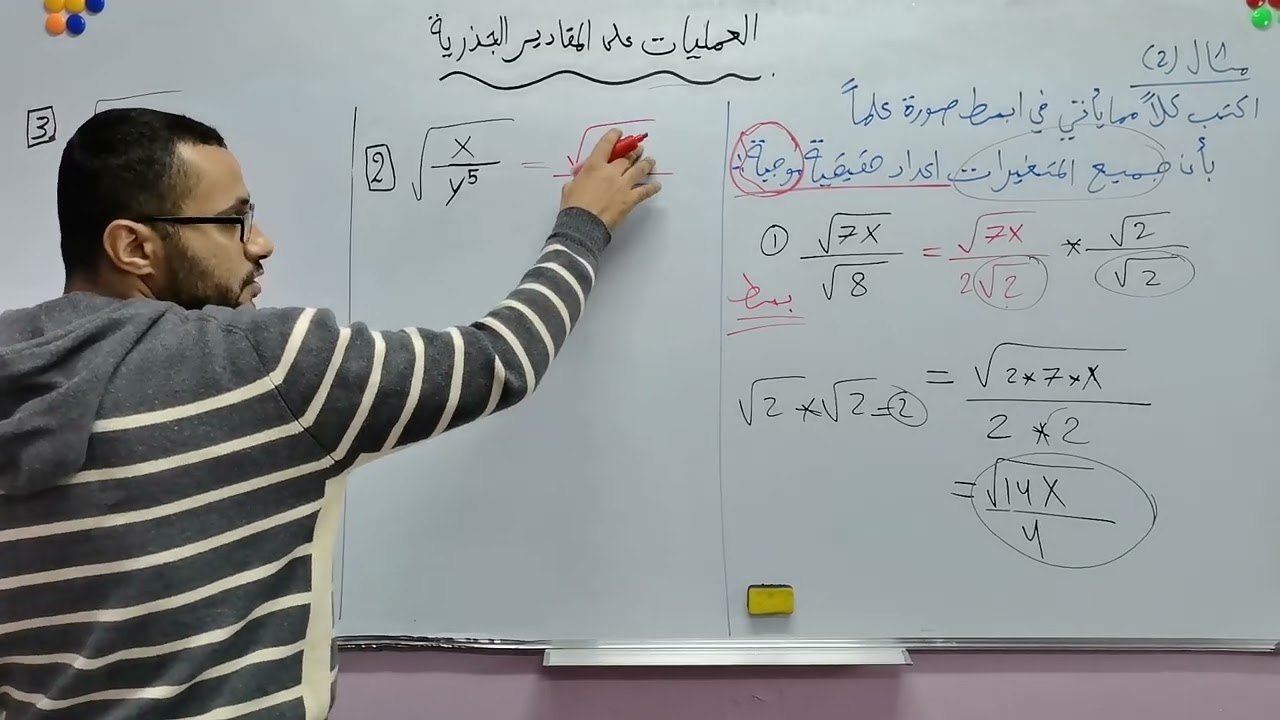 العمليات على المقادير الجذرية
مثال (2)
اكتب كلاً مما يأتي في ابسط صورة علماً
بأن جميع المتغيرات اعداد حقيقية موجبة:
① √7x / √8 = √7x / 2√2 * √2 / √2
بسط
√2 * √2 = 2
= √2*7*x / 2*2
= √14x / 4
2 √(x / y⁵) = √
3